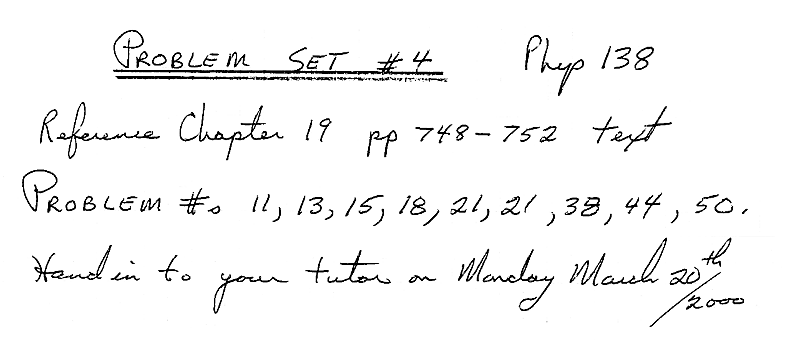 PROBLEM SET #4 Phys 138
Reference Chapter 19 pp 748-752 text
PROBLEM #s 11, 13, 15, 18, 21, 21, 38, 44, 50.
Hand in to your tutor on Monday March 20th/2000